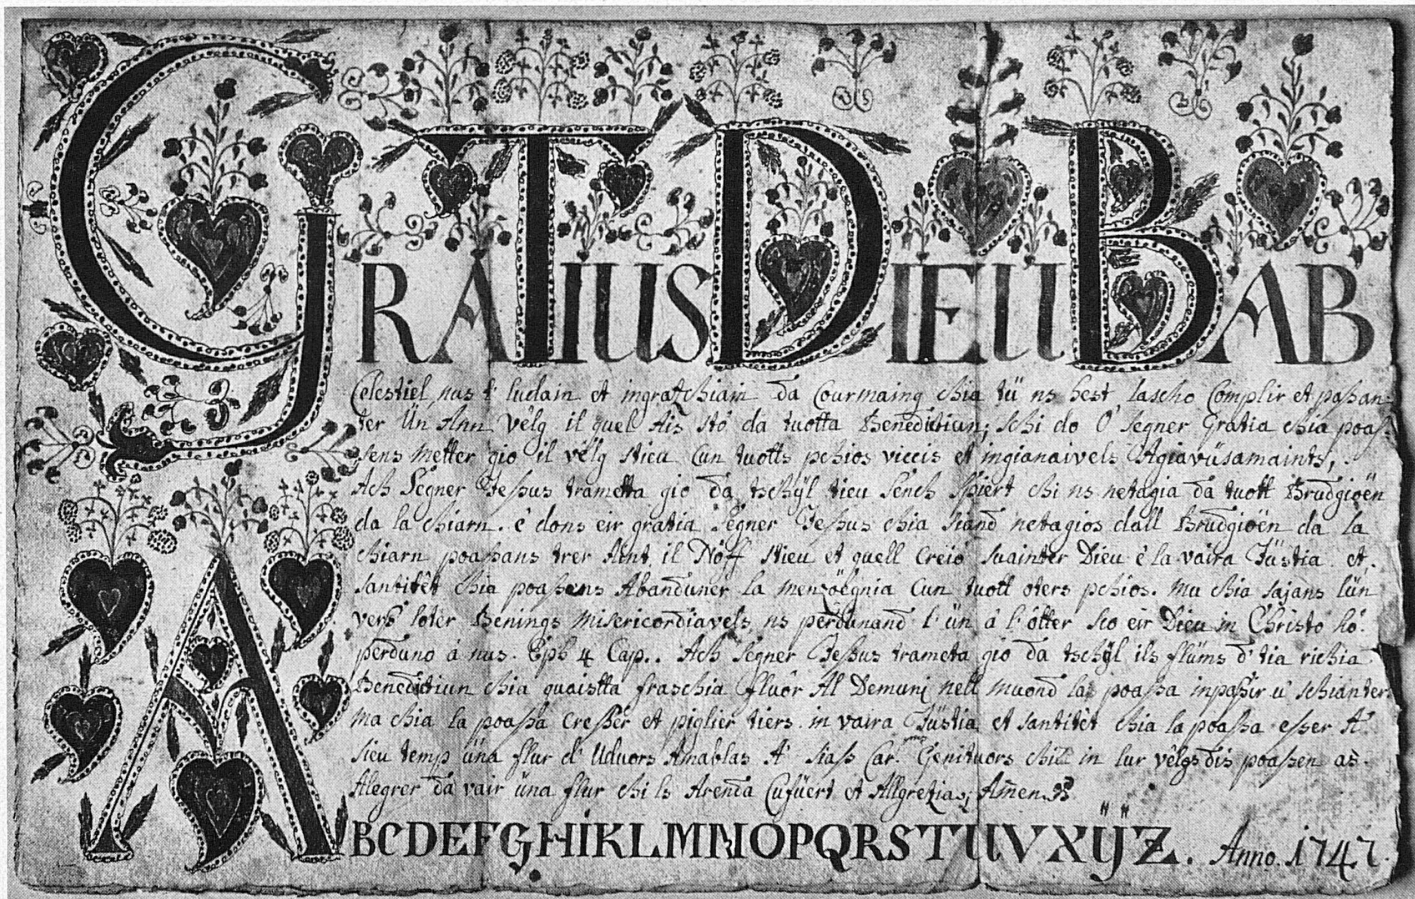 GRATIUS DIEU BAB
Celestiel, nus t' ludain et ingratchiain da Courmaing chia tü ns hest lascho Complir et paßan-
ter Ün Ann vêlg il quel Ais sto da tuotta Benedictiun; schi do O' segner Gratia chia poaß-
sens metter gio il vêlg stieu Cun tuotts pchios viccis et ingianaivels Agiavüsamaints,
Ach Segner Jeßus trametta gio da tschÿl tieu Sench Spiert chi ns netagia da tuott Brudgioën
da la chiarn. è dons eir gratia Segner Jeßus chia siand netagios dall Brudgioën da la
chiarn poaßans trer Aint il Nöff stieu et quell Creio suainter Dieu è la vaira Jüstia et
santitêt chia poaßens Abandunêr la menzöegnia Cun tuott oters pchios. mu chia sajans l'ün
vers loter Benings misericordiavels, ns perdunand l'ün à l'ôtter sco eir Dieu in Christo hó
perduno à nus. Eph 4 Cap.. Ach segner Jeßus trameta gio da tschÿl ils flüms d'tia richia
Benedictiun chia quaistta fraschia fluôr Al Demuni nell muond la poaßa inpaßir u' schianter
ma chia la poaßa Creßêr et piglier tiers in vaira Jüstia et santitêt chia la poaßa eßer A'
sieu temp üna flur d' Uduors Amablas A' siaß Car. Genituors chi in lur vêlgs dis poaßen as
Alegrer da vair üna flur chi ls Arenda Cufüert et Allgretzias, Amen.
ABCDEFGHIKLMNOPQRSTUVXŸZ. Anno. 1747.